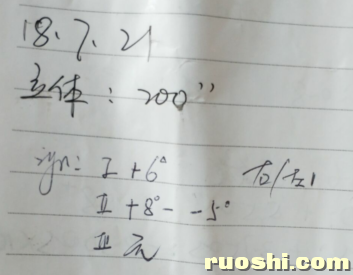 18.7.21
立体：200"
syn: I +6° 右/左
II +8° - -5°
III 无
ruoshi.com